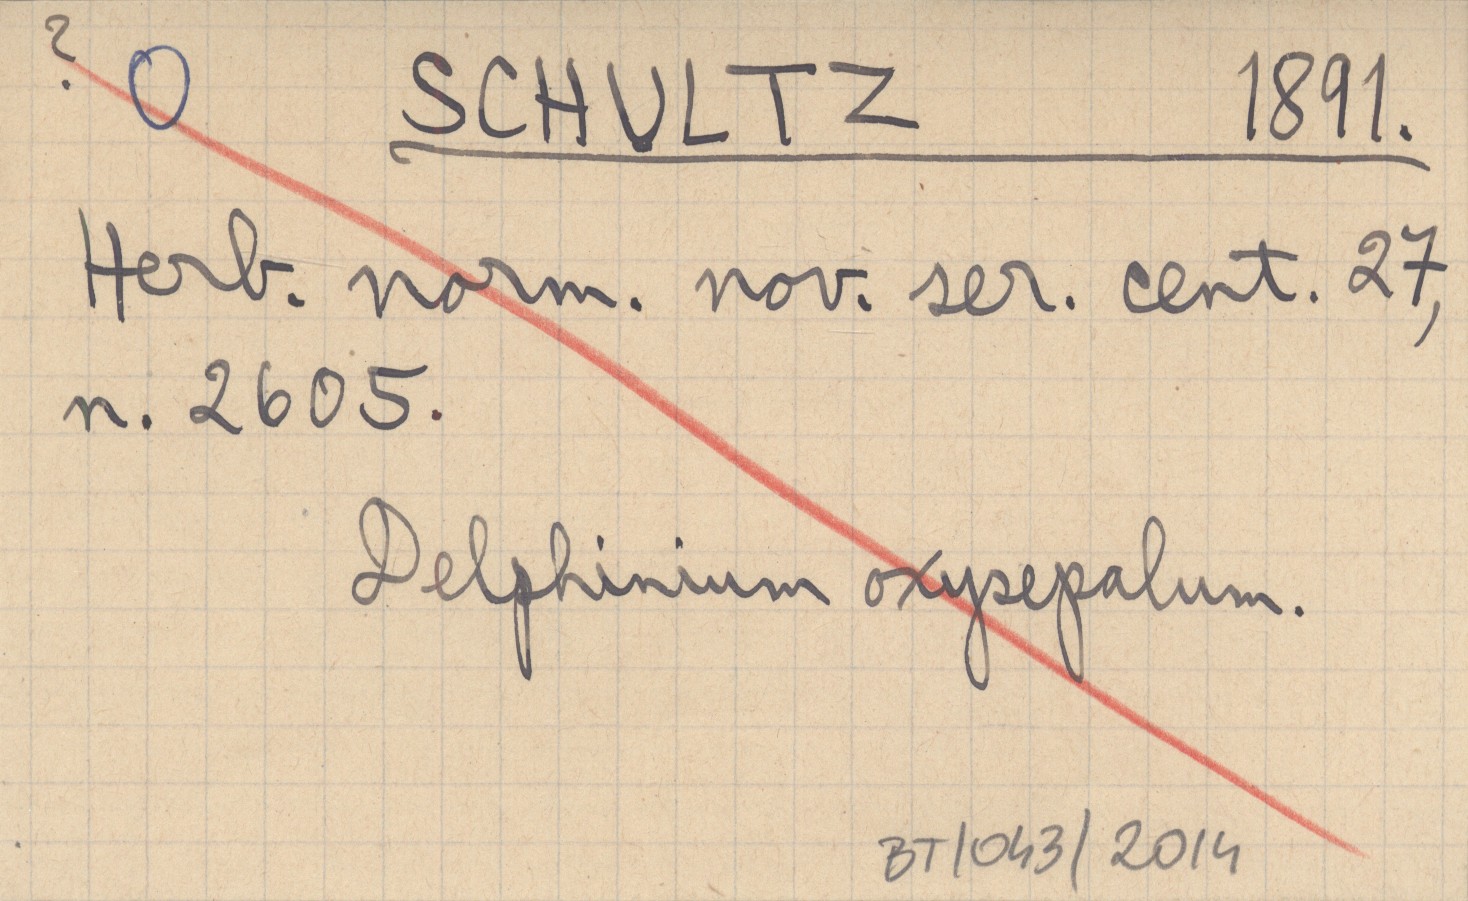 ?
O SCHULTZ 1891.
Herb. norm. nov. ser. cent. 27,
n. 2605.
Delphinium oxysepalum.
BT/043/2014